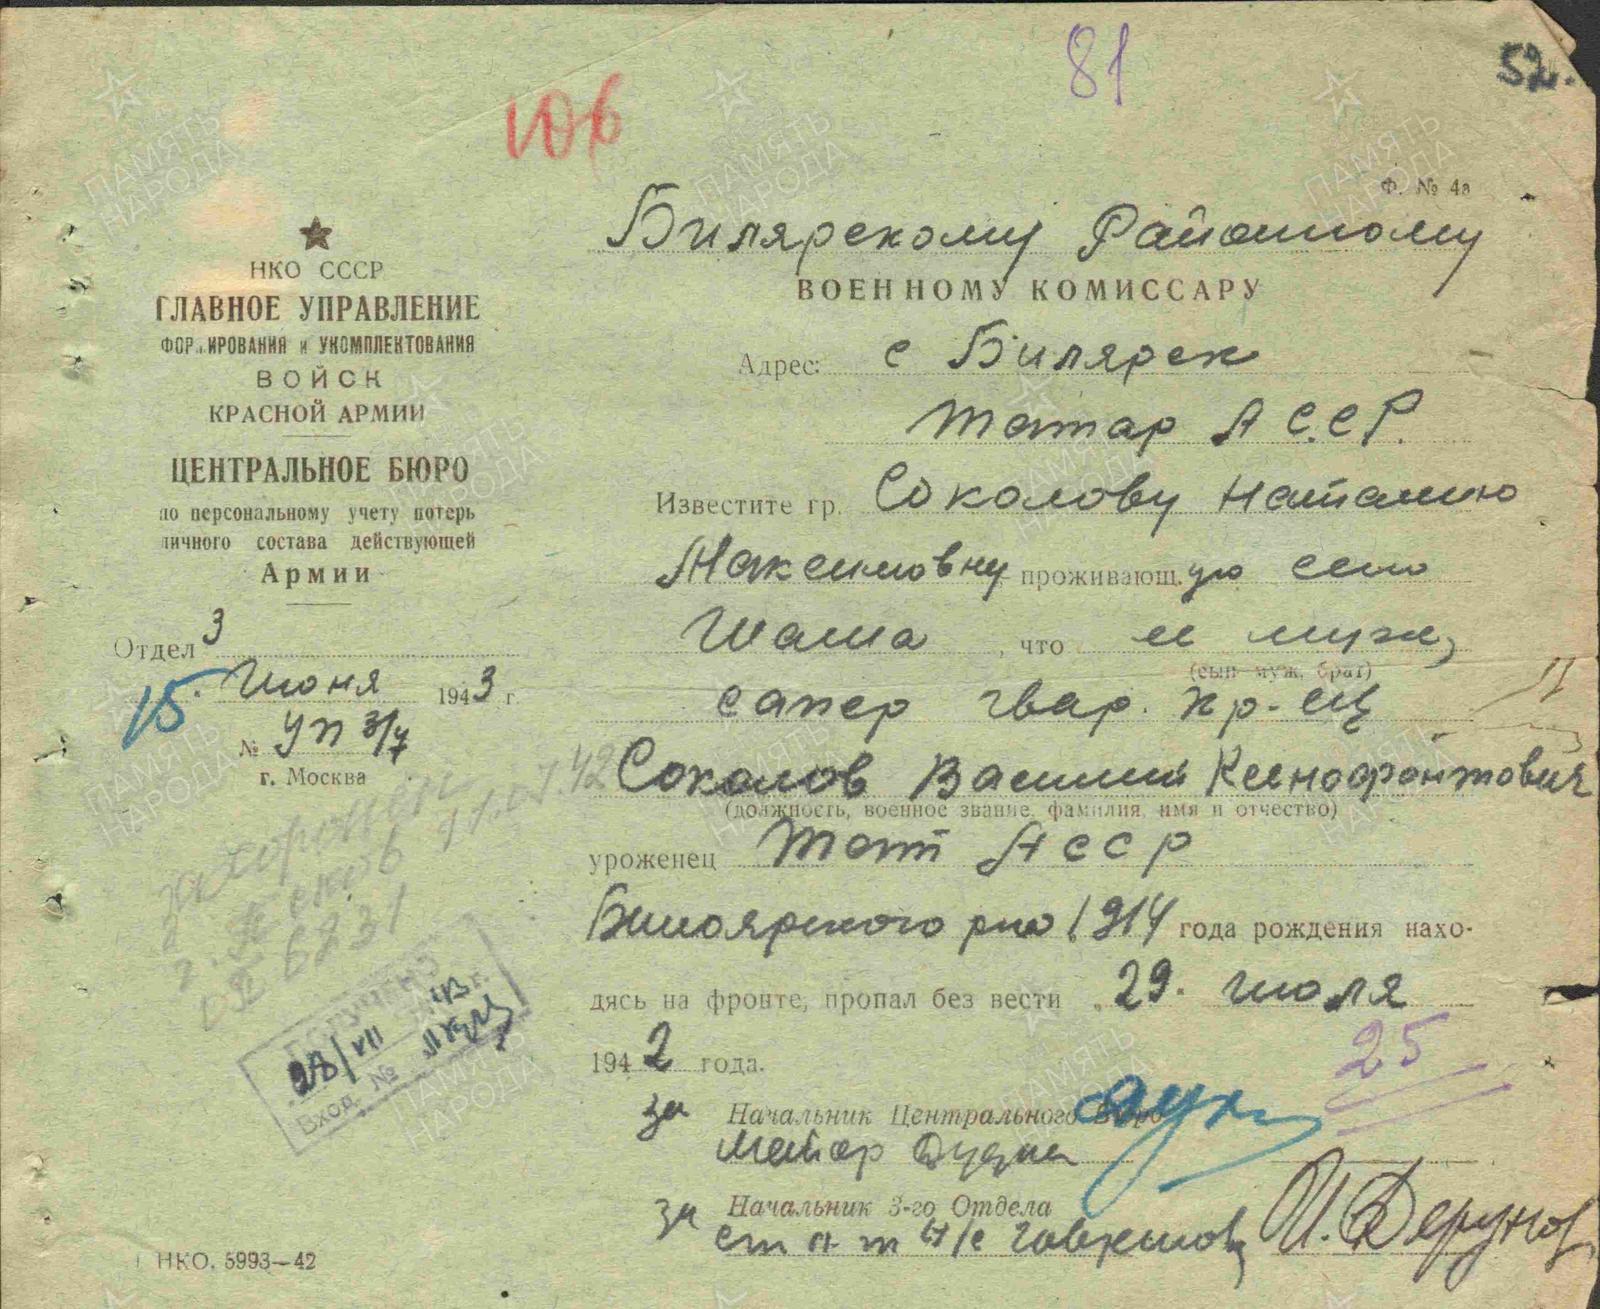 81
52.
106
Ф. № 4а
НКО СССР
ГЛАВНОЕ УПРАВЛЕНИЕ
ФОРМИРОВАНИЯ и УКОМПЛЕКТОВАНИЯ
ВОЙСК
КРАСНОЙ АРМИИ
ЦЕНТРАЛЬНОЕ БЮРО
по персональному учету потерь
личного состава действующей
Армии
Отдел 3
15. Июня 1943 г.
№ УП 3/7
г. Москва
захоронен 11.07.42
г. Псков
6231
ПОЛУЧЕНО
28/VII 43 г.
Вход. №
НКО. 5993—42
Билярскому Районному
ВОЕННОМУ КОМИССАРУ
Адрес: с Билярск
Татар АССР.
Известите гр. Соколову Наталию
Максимовну проживающ.ую село
Шама, что ее муж,
(сын муж, брат)
сапер гвар. кр-ец
Соколов Василий Ксенофонтович
(должность, военное звание, фамилия, имя и отчество)
уроженец Тат АССР
Билярского р-на 1914 года рождения нахо-
дясь на фронте, пропал без вести „29. июля
1942 года.
25
за Начальник Центрального Бюро
майор
за Начальник 3-го Отдела
ст л-т а/с
ПАМЯТЬ НАРОДА